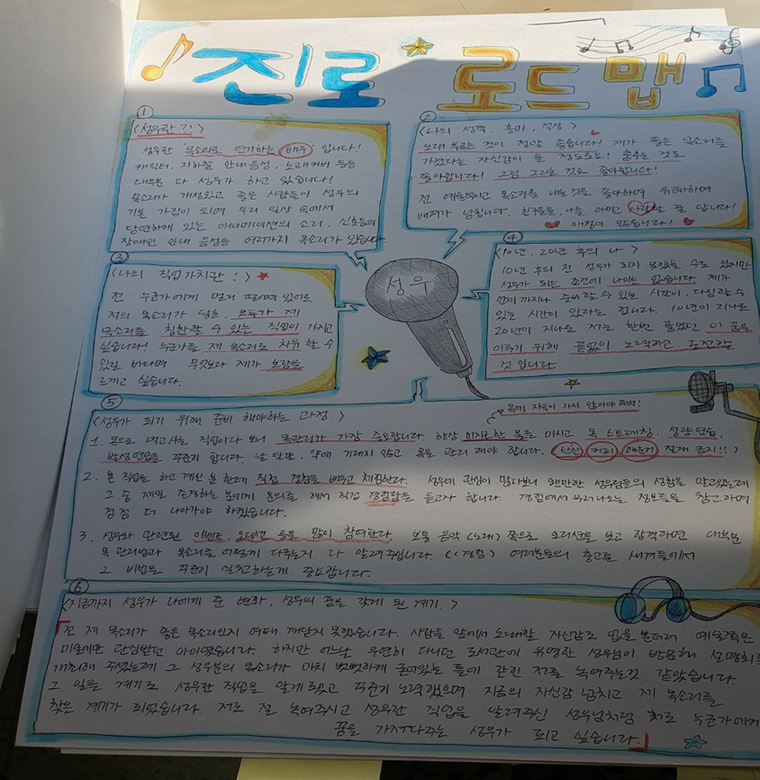 진로 로드맵
①
<성우란?!>
성우란 '목소리로 연기하는 배우'입니다!
캐릭터, 지하철 안내음성, 노래커버 등등
대부분 다 성우가 하고 있습니다!
목소리가 개성있고 좋은 사람들이 성우의
기본 가짐이 되며 우리 일상 속에서
당연하게 있는 애니메이션의 소리, 신호등의
장애인 안내 음성등 여러가지 목소리가 있습니다.
②
<나의 성격, 흥미, 적성>
노래 부르는 것이 정말 좋습니다! 제가 좋은 목소리를
가졌다는 자신감이 들 정도로요! 춤추는 것도
좋아합니다! 그림 그리는 것도 좋아합니다!
전 예술적이고 목소리를 내는것을 좋아하며
배려가 넘칩니다. 친구들을, 나를 아끼고 사랑할 줄 압니다!
애정이 많습니다!
③
<나의 직업가치관!>
전 누군가에게 먼저 있어
저의 목소리가 모두가 제
목소리를 칭찬할 수 있는 직업이 가지고
싶습니다! 누군가를 제 목소리로 치유할 수
있길 바라며 무엇보다 제가 보람을
느끼고 싶습니다.
성우
④
<10년, 20년 후의 나>
10년 후의 전 성우가 되지 못했을 수도 있지만
성우가 되는 조건에 나이는 없습니다. 제가
언제까지나 준비할 수 있는 시간이, 다짐할 수
있는 시간이 있다는 겁니다. 10년이 지나도
20년이 지나도 저는 한번 품었던 이 꿈을
이루기 위해 끝없이 노력하고 도전하는
것 입니다
⑤
<성우가 되기 위해 준비 해야하는 과정.>
목에 자극이 가지 않아야 해서!
1. 목으로 먹고사는 직업이다 보니 목관리가 가장 중요합니다. 항상 미지근한 물을 마시고 목 스트레칭, 성량연습,
발성연습을 꾸준히 합니다. 난 단팥, 약에 기대지 않고 목을 관리 해야 합니다. 탄산 커피 매운거 절대 금지!!
2. 본 직업을 하고 계신 분 한테 직접 경험을 배우고 체험한다. 성우에 관심이 많다보니 웬만한 성우님들의 성함을 알고있는데
그 중 제일 존경하는 분에게 동의를 해서 직접 경험담을 듣고자 합니다. 경험에서 우러나오는 정보들을 참고하며
점점 더 나아가야 하겠습니다.
3. 성우와 관련된 이벤트, 오디션 등을 많이 참여한다. 보통 음악(노래) 쪽으로 오디션을 보고 합격하면 대부분
목 관리법과 목소리를 어떻게 다루는지 다 알려주십니다. (<경험) 여러분들의 충고를 새겨들어서
그 비법을 꾸준히 실천하는게 중요합니다.
⑥
<지금까지 성우가 나에게 준 변화, 성우의 꿈을 갖게 된 계기.>
전 제 목소리가 좋은 목소리인지 여태 깨닫지 못했습니다. 사람들 앞에서 노래할 자신감도 없을 뿐더러 예술쪽은
미술이란 단상뿐인 아이였습니다. 하지만 어느날 우연히 다니던 도서관에 유명한 성우님이 방문해 설명회를
개최해 주셨는데 그 성우분의 목소리가 마치 뻣뻣하게 굳어있는 틀에 갇힌 저를 녹여주는것 같았습니다.
그 일을 계기로 성우란 직업을 알게 되었고 꾸준히 노력했으며 지금의 자신감 넘치고 제 목소리를
찾은 계기가 되었습니다. 저를 잘 녹여주시고 성우란 직업을 알려주신 성우님처럼 저도 누군가에게
꿈을 가져다주는 성우가 되고 싶습니다.